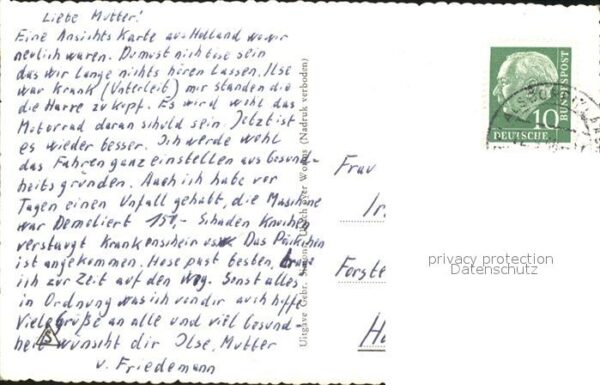 Liebe Mutter!
Eine Ansichts Karte aus Holland wo wir
neulich waren. Du must nich böse sein
das wir lange nichts hören lassen. Ilse
war krank (Unterleib) mir standen die
die Harre zu kopf. Es wird wohl das
Motorrad daran schuld sein. Jetzt ist
es wieder besser. Ich werde wohl
das Fahren ganz einstellen aus Gesund-
heitsgründen. Auch ich habe vor
Tagen einen Unfall gehabt, die Maschine
war Demoliert 150,- Schaden Knochen
verstaugt Krankenschein usw. Das Päckchen
ist angekommen. Hose past bestens,
ich zur Zeit auf den Weg. Sonst alles
in Ordnung was ich von dir auch hoffe
Viele Grüße an alle und viel Gesund-
heit wünscht dir Ilse, Mutter
v. Friedemann
Uitgave Gebr. Simons, Ubach over Worms (Nadruk verboden)
10
DEUTSCHE
BUNDESPOST
Frau
Ir
Forste
Ha
privacy protection
Datenschutz